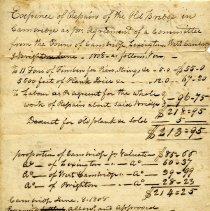 Expence of Repairs of the Old Bridge in
Cambridge as pr Agreement of a Committee
from the Towns of Cambridge Lexington West Cambridge
& Brighton June 1808 as follows
To 11 Tons of Timber for Piers String &c @ 5 $ 55-0
5600 feet of Plank Dice @ 12.0 67-20
To Labour as pr agreement for the whole
work of Repairs about said bridge } 96-75
$ 218-95
Discount for old plank so sold
$ 213-95
proportion of Cambridge pr Valuation $ 85-66
Do of Lexington Do 50-37
Do of West Cambridge Do 49
Do of Brighton Do 28-23
$ 214 25
Cambridge June 1808
allowed and approved